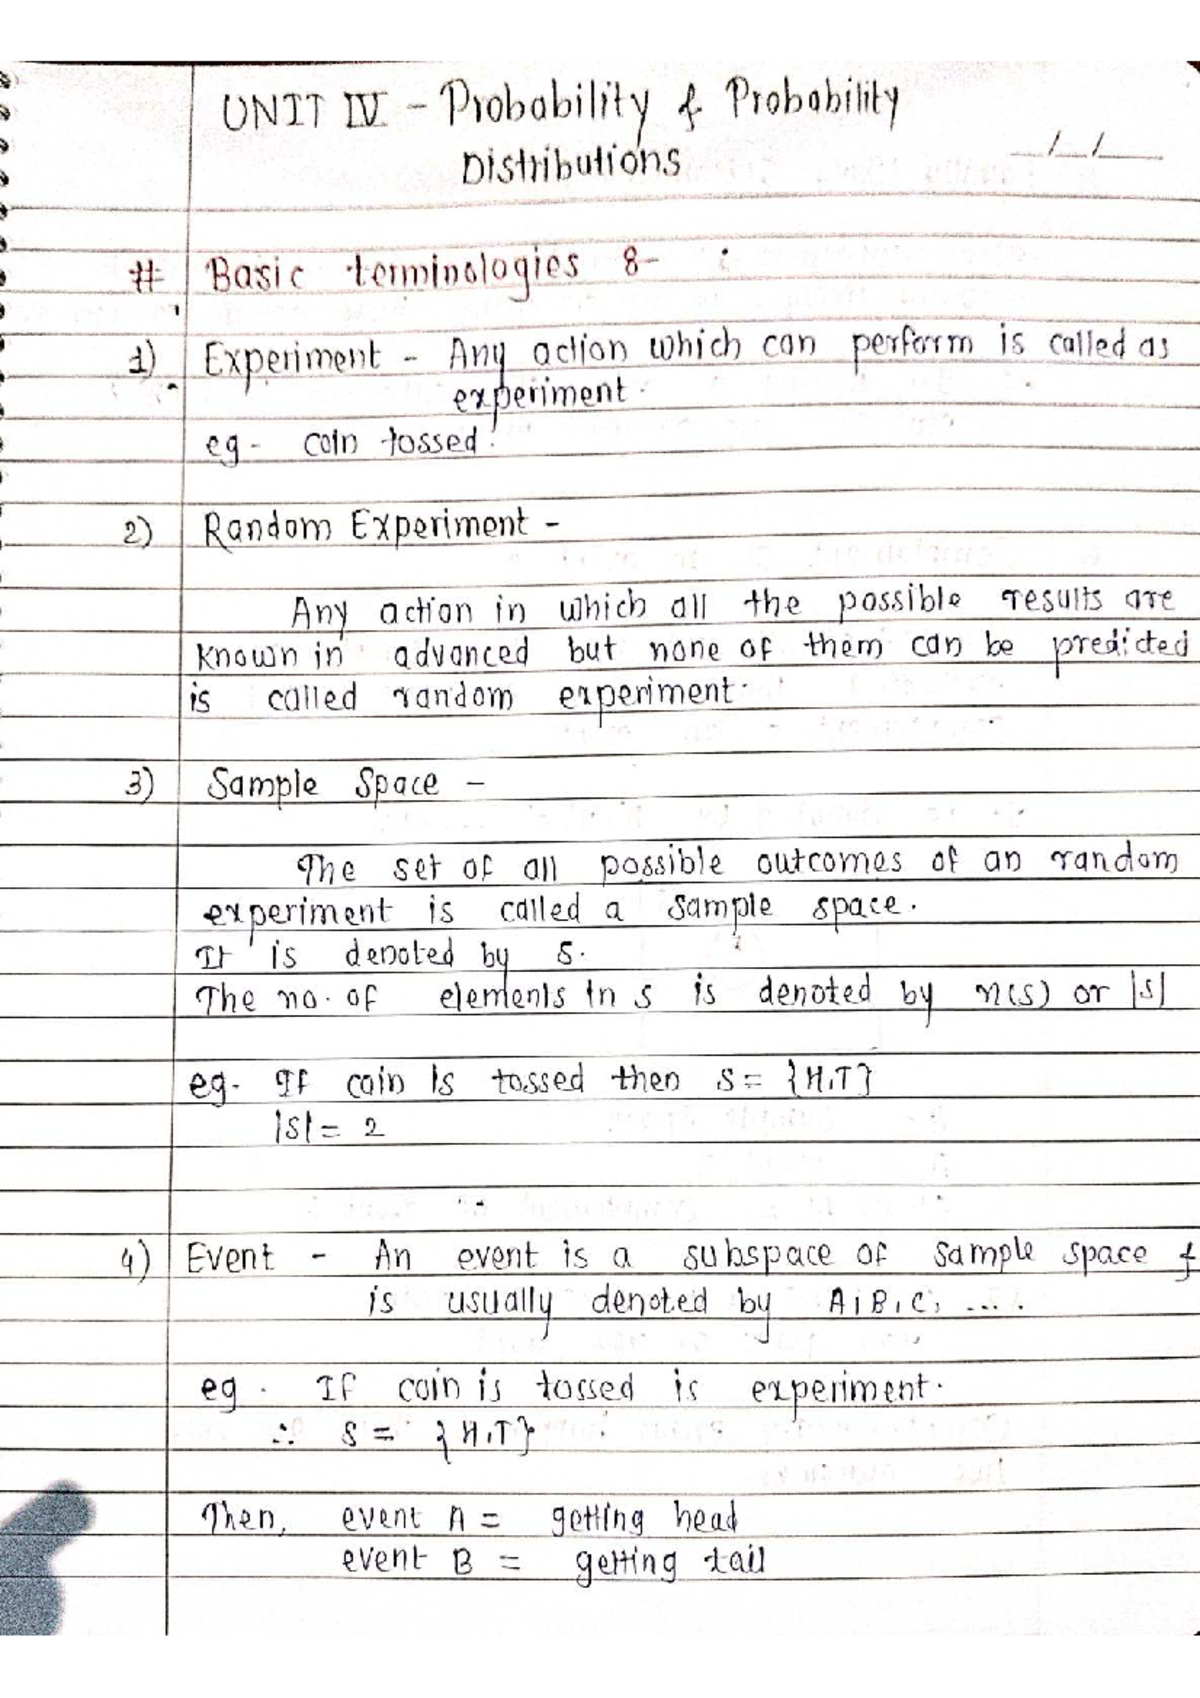 UNIT IV - Probability & Probability
Distributions
__/__/____
# Basic terminologies :-
1) Experiment - Any action which can perform is called as
experiment.
eg - coin tossed.
2) Random Experiment -
Any action in which all the possible results are
known in advanced but none of them can be predicted
is called random experiment.
3) Sample Space -
The set of all possible outcomes of an random
experiment is called a sample space.
It is denoted by S.
The no. of elements in s is denoted by n(s) or |s|
eg. If coin is tossed then S = {H,T}
|S| = 2
4) Event - An event is a subspace of sample space &
is usually denoted by A, B, C, ....
eg. If coin is tossed is experiment.
∴ S = {H,T}
Then, event A = getting head
event B = getting tail